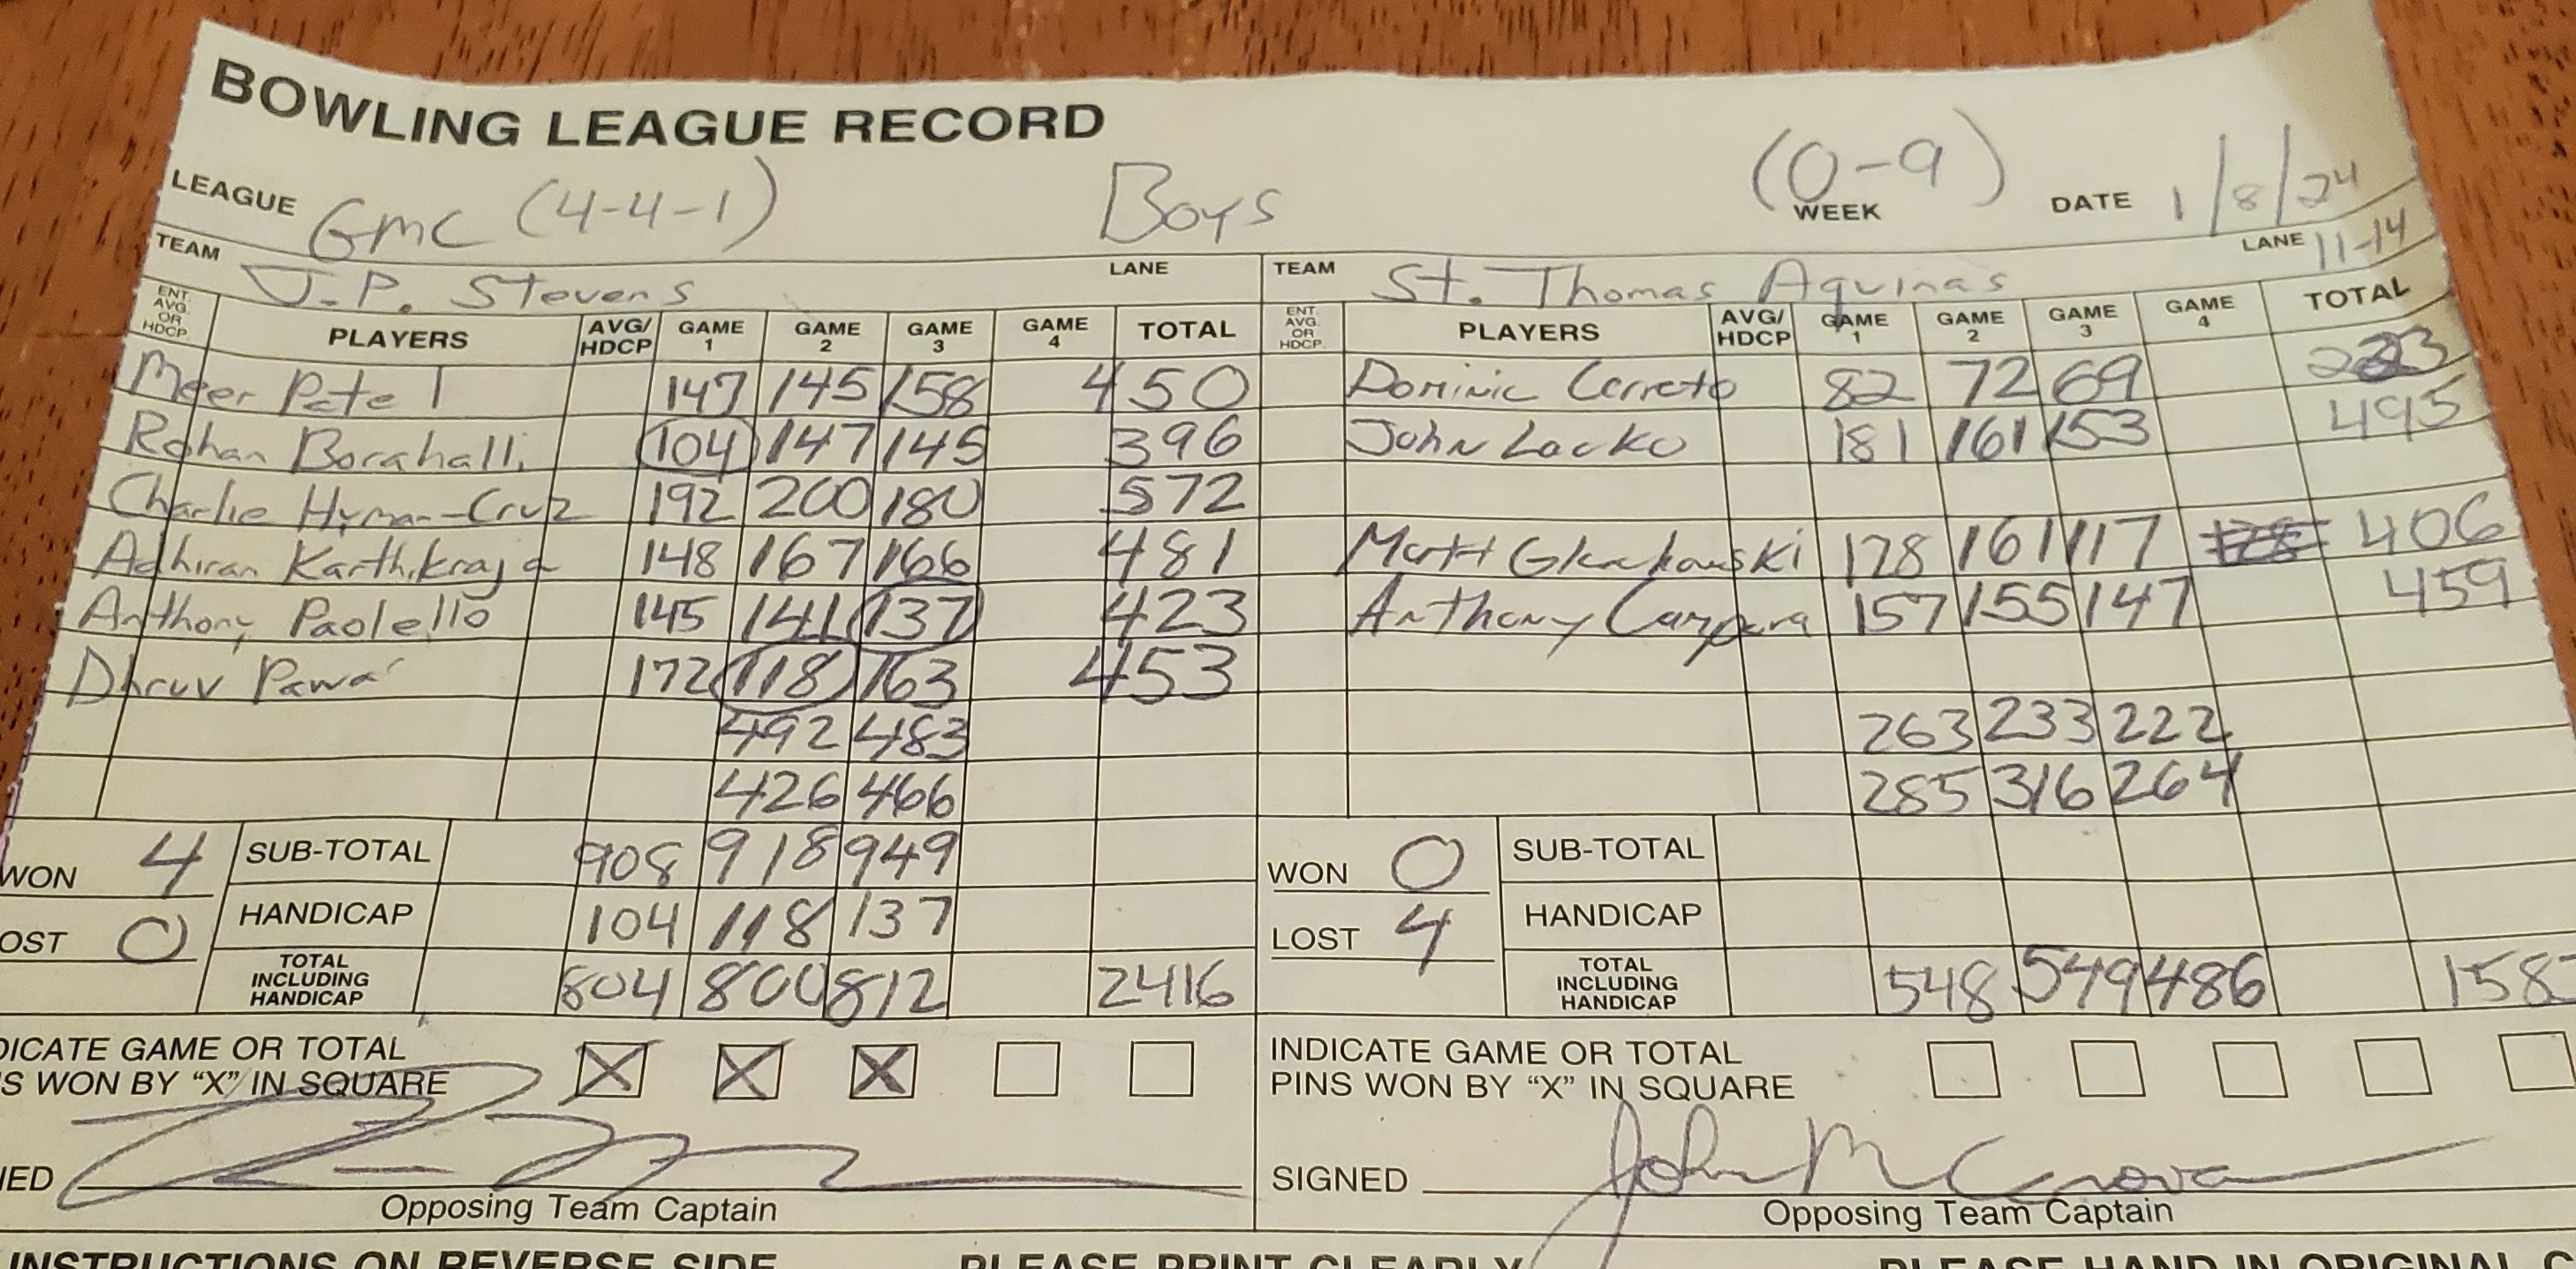 BOWLING LEAGUE RECORD
LEAGUE GMC (4-4-1) Boys (0-9) WEEK DATE 1/8/24
TEAM J.P. Stevens LANE TEAM St. Thomas Aquinas LANE 11-14
ENT. AVG. OR HDCP. PLAYERS AVG/HDCP GAME 1 GAME 2 GAME 3 GAME 4 TOTAL ENT. AVG. OR HDCP. PLAYERS AVG/HDCP GAME 1 GAME 2 GAME 3 GAME 4 TOTAL
Meer Patel 147 145 158 450 Dominic Cerreto 82 72 69 223
Rohan Borahalli 104 147 145 396 John Lacko 181 161 153 495
Charlie Hyman-Cruz 192 200 180 572
Adhiran Karthikraja 148 167 166 481 Matt 128 161 117 406
Anthony Paolello 145 141 137 423 Anthony Campora 157 155 147 459
Dhruv Pawar 172 118 163 453
492 483 263 233 222
426 466 285 316 264
WON 4 SUB-TOTAL 908 918 949 WON 0 SUB-TOTAL
OST 0 HANDICAP 104 118 137 LOST 4 HANDICAP
TOTAL INCLUDING HANDICAP 804 800 812 2416 TOTAL INCLUDING HANDICAP 548 549 486 158
DICATE GAME OR TOTAL X X X INDICATE GAME OR TOTAL
S WON BY "X" IN SQUARE PINS WON BY "X" IN SQUARE
NED SIGNED John
Opposing Team Captain Opposing Team Captain
INSTRUCTIONS ON REVERSE SIDE PLEASE PRINT CLEARLY PLEASE HAND IN ORIGINAL